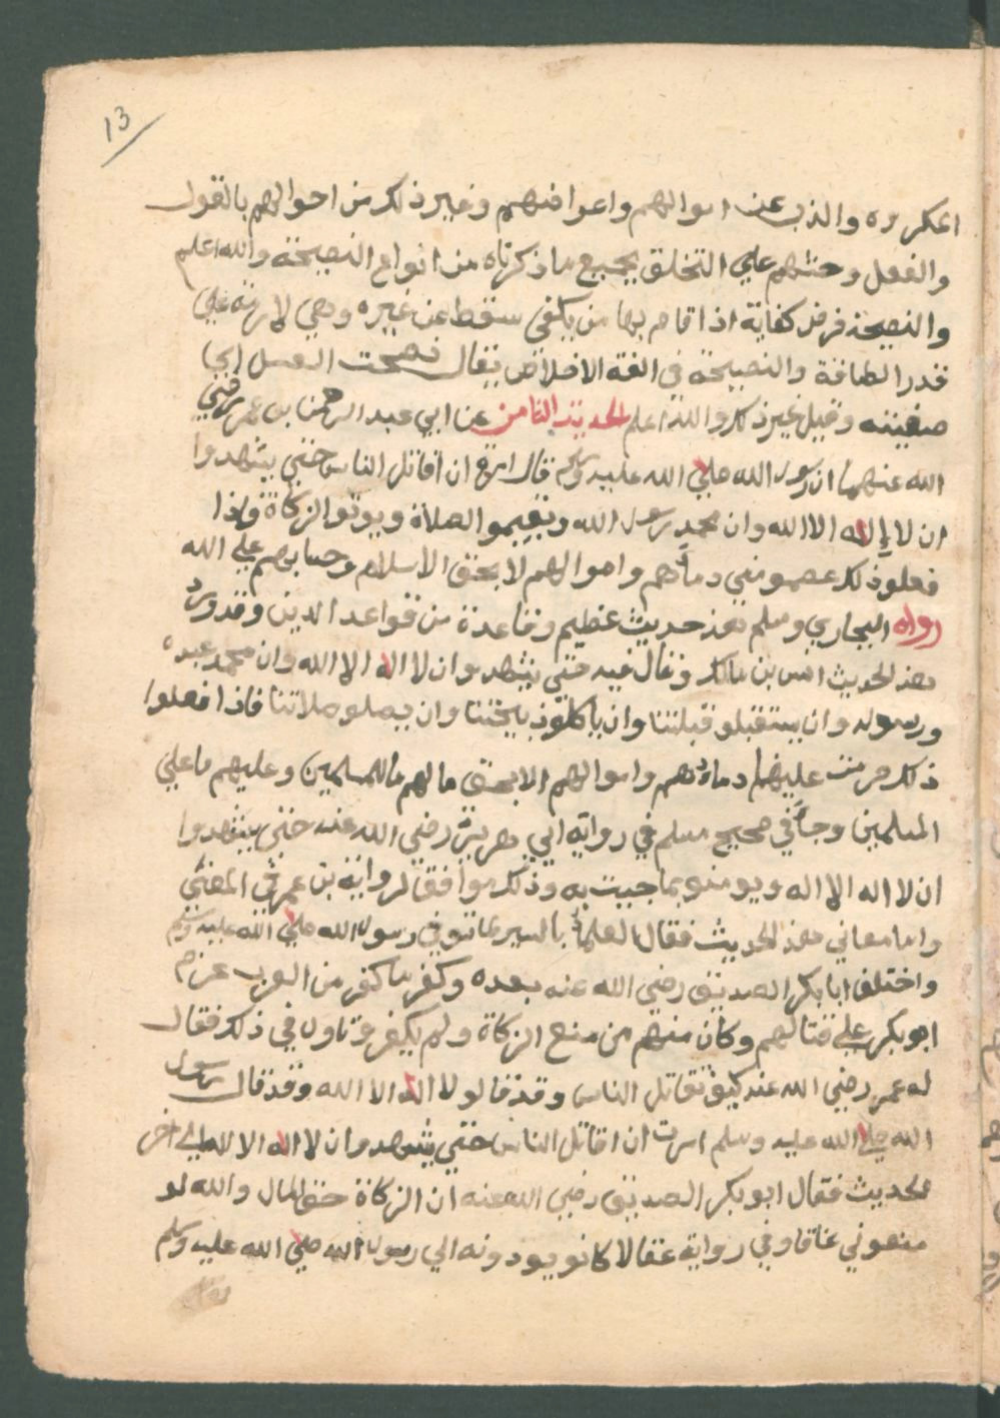 13
المكروه والذب عن اموالهم واعراضهم وغير ذلك من احوالهم بالقول
والفعل وحثهم علي التخلق بجميع ما ذكرناه من انواع النصيحة والله اعلم
والنصيحة فرض كفاية اذا قام بها من يكفي سقط عن غيره وهي لازمة علي
قدر الطاقة والنصيحة في الغة الاخلاص يقال نصحت العسل اي
صفيته وقيل غير ذلك والله اعلم الحديث الثامن عن ابي عبد الرحمن بن عمر رضي
الله عنهما ان رسول الله صلي الله عليه وسلم قال امرت ان اقاتل الناس حتي يشهدوا
ان لا إله الا الله وان محمد رسول الله ويقيموا الصلاة ويوتوا الزكاة فإذا
فعلوذلك عصمو مني دمآهم واموالهم لا بحق الاسلام وحسابهم علي الله
رواه البخاري ومسلم هذ حديث عظيم وقاعدة من قواعد الدين وقد روي
هذ الحديث انس بن مالك وقال فيه حتي يشهدوا ان لا اله الا الله وان محمد عبده
ورسوله وان يستقبلو قبلتنا وان ياكلو ذبيحتنا وان يصلو صلاتنا فاذا فعلوا
ذلك حرمت علينا دماؤهم واموالهم الا بحقها لهم ما للمسلمين وعليهم ما علي
المسلمين وجآ في صحيح مسلم في رواية ابي هريرة رضي الله عنه حتي يشهدوا
ان لا اله الا اله ويومنو بما جيت به وذلك موافقا لرواية بن عمر في المعني
واما معاني هذ الحديث فقال العلمآ بالسير لما توفي رسول الله صلي الله عليه وسلم
واختلف ابا بكر الصديق رضي الله عنه بعده وكفر ما كفر من العرب عزم
ابو بكر علي قتالهم وكان منهم من منع الزكاة ولم يكفر وتاول في ذلك فقال
له عمر رضي الله عنه كيف تقاتل الناس وقد قالو لا اله الا الله وقد قال رسول
الله صلي الله عليه وسلم امرت ان اقاتل الناس حتي يشهدوا ان لا اله الا لله الي اخر
لحديث فقال ابو بكر الصديق رضي الله عنه ان الزكاة حق المال والله لو
منعوني عناقا وفي رواية عقالا كانو يودونه الي رسول الله صلي الله عليه وسلم